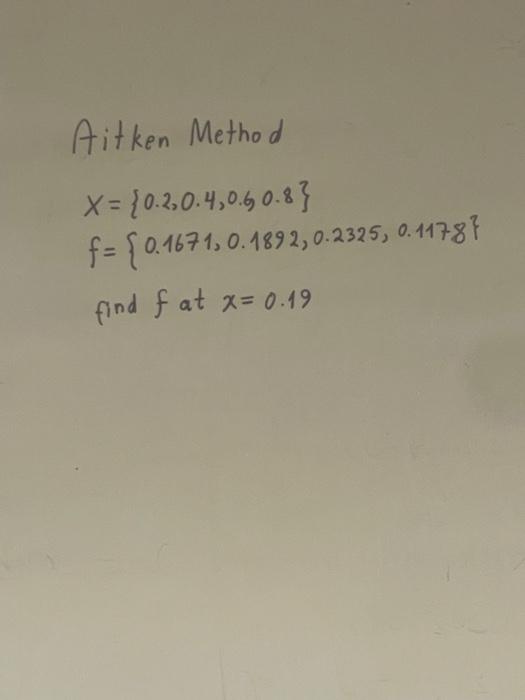 Aitken Method
X = {0.2, 0.4, 0.6, 0.8}
f = {0.1671, 0.1892, 0.2325, 0.1178}
find f at x = 0.19